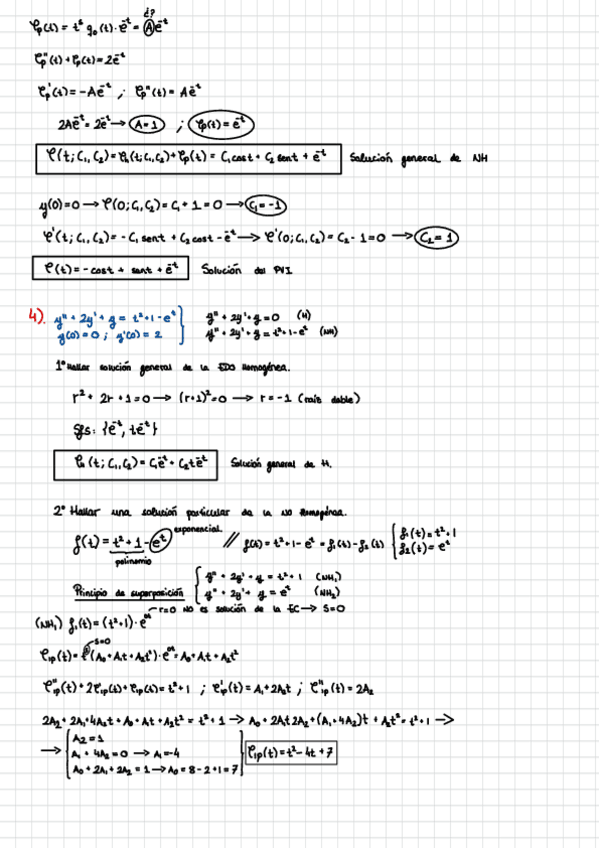 ¿?
φp(t) = t^s g₀(t)·e^-t = Ae^-t
φp''(t) + φp(t) = 2e^-t
φp'(t) = -Ae^-t ; φp''(t) = Ae^-t
2Ae^-t = 2e^-t → A=1 ; φp(t) = e^-t
φ(t; C₁, C₂) = φh(t; C₁, C₂) + φp(t) = C₁cost + C₂ sent + e^-t Solución general de NH
y(0)=0 → φ(0; C₁, C₂) = C₁ + 1 = 0 → C₁ = -1
φ'(t; C₁, C₂) = -C₁ sent + C₂ cost - e^-t → φ'(0; C₁, C₂) = C₂ - 1 = 0 → C₂ = 1
φ(t) = -cost + sent + e^-t Solución del PVI.
4). y'' + 2y' + y = t² + 1 - e^t } y'' + 2y' + y = 0 (H)
y(0) = 0 ; y'(0) = 2 y'' + 2y' + y = t² + 1 - e^t (NH)
1º Hallar solución general de la EDO Homogénea.
r² + 2r + 1 = 0 → (r+1)² = 0 → r = -1 (raíz doble)
Sfs: {e^-t, te^-t}
φh(t; C₁, C₂) = C₁e^-t + C₂te^-t Solución general de H.
2º Hallar una solución particular de la No Homogénea.
f(t) = t² + 1 - e^t exponencial. // f(t) = t² + 1 - e^t = f₁(t) - f₂(t) { f₁(t) = t² + 1
polinomio f₂(t) = e^t
Principio de superposición { y'' + 2y' + y = t² + 1 (NH₁)
y'' + 2y' + y = e^t (NH₂)
r=0 NO es solución de la EC → S=0
(NH₁) f₁(t) = (t² + 1)·e^0t
s=0
φ₁p(t) = t^s (A₀ + A₁t + A₂t²)·e^0t = A₀ + A₁t + A₂t²
φ₁p''(t) + 2φ₁p'(t) + φ₁p(t) = t² + 1 ; φ₁p'(t) = A₁ + 2A₂t ; φ₁p''(t) = 2A₂
2A₂ + 2A₁ + 4A₂t + A₀ + A₁t + A₂t² = t² + 1 → A₀ + 2A₁ + 2A₂ + (A₁ + 4A₂)t + A₂t² = t² + 1 →
→ { A₂ = 1
A₁ + 4A₂ = 0 → A₁ = -4
A₀ + 2A₁ + 2A₂ = 1 → A₀ = 8 - 2 + 1 = 7 } φ₁p(t) = t² - 4t + 7